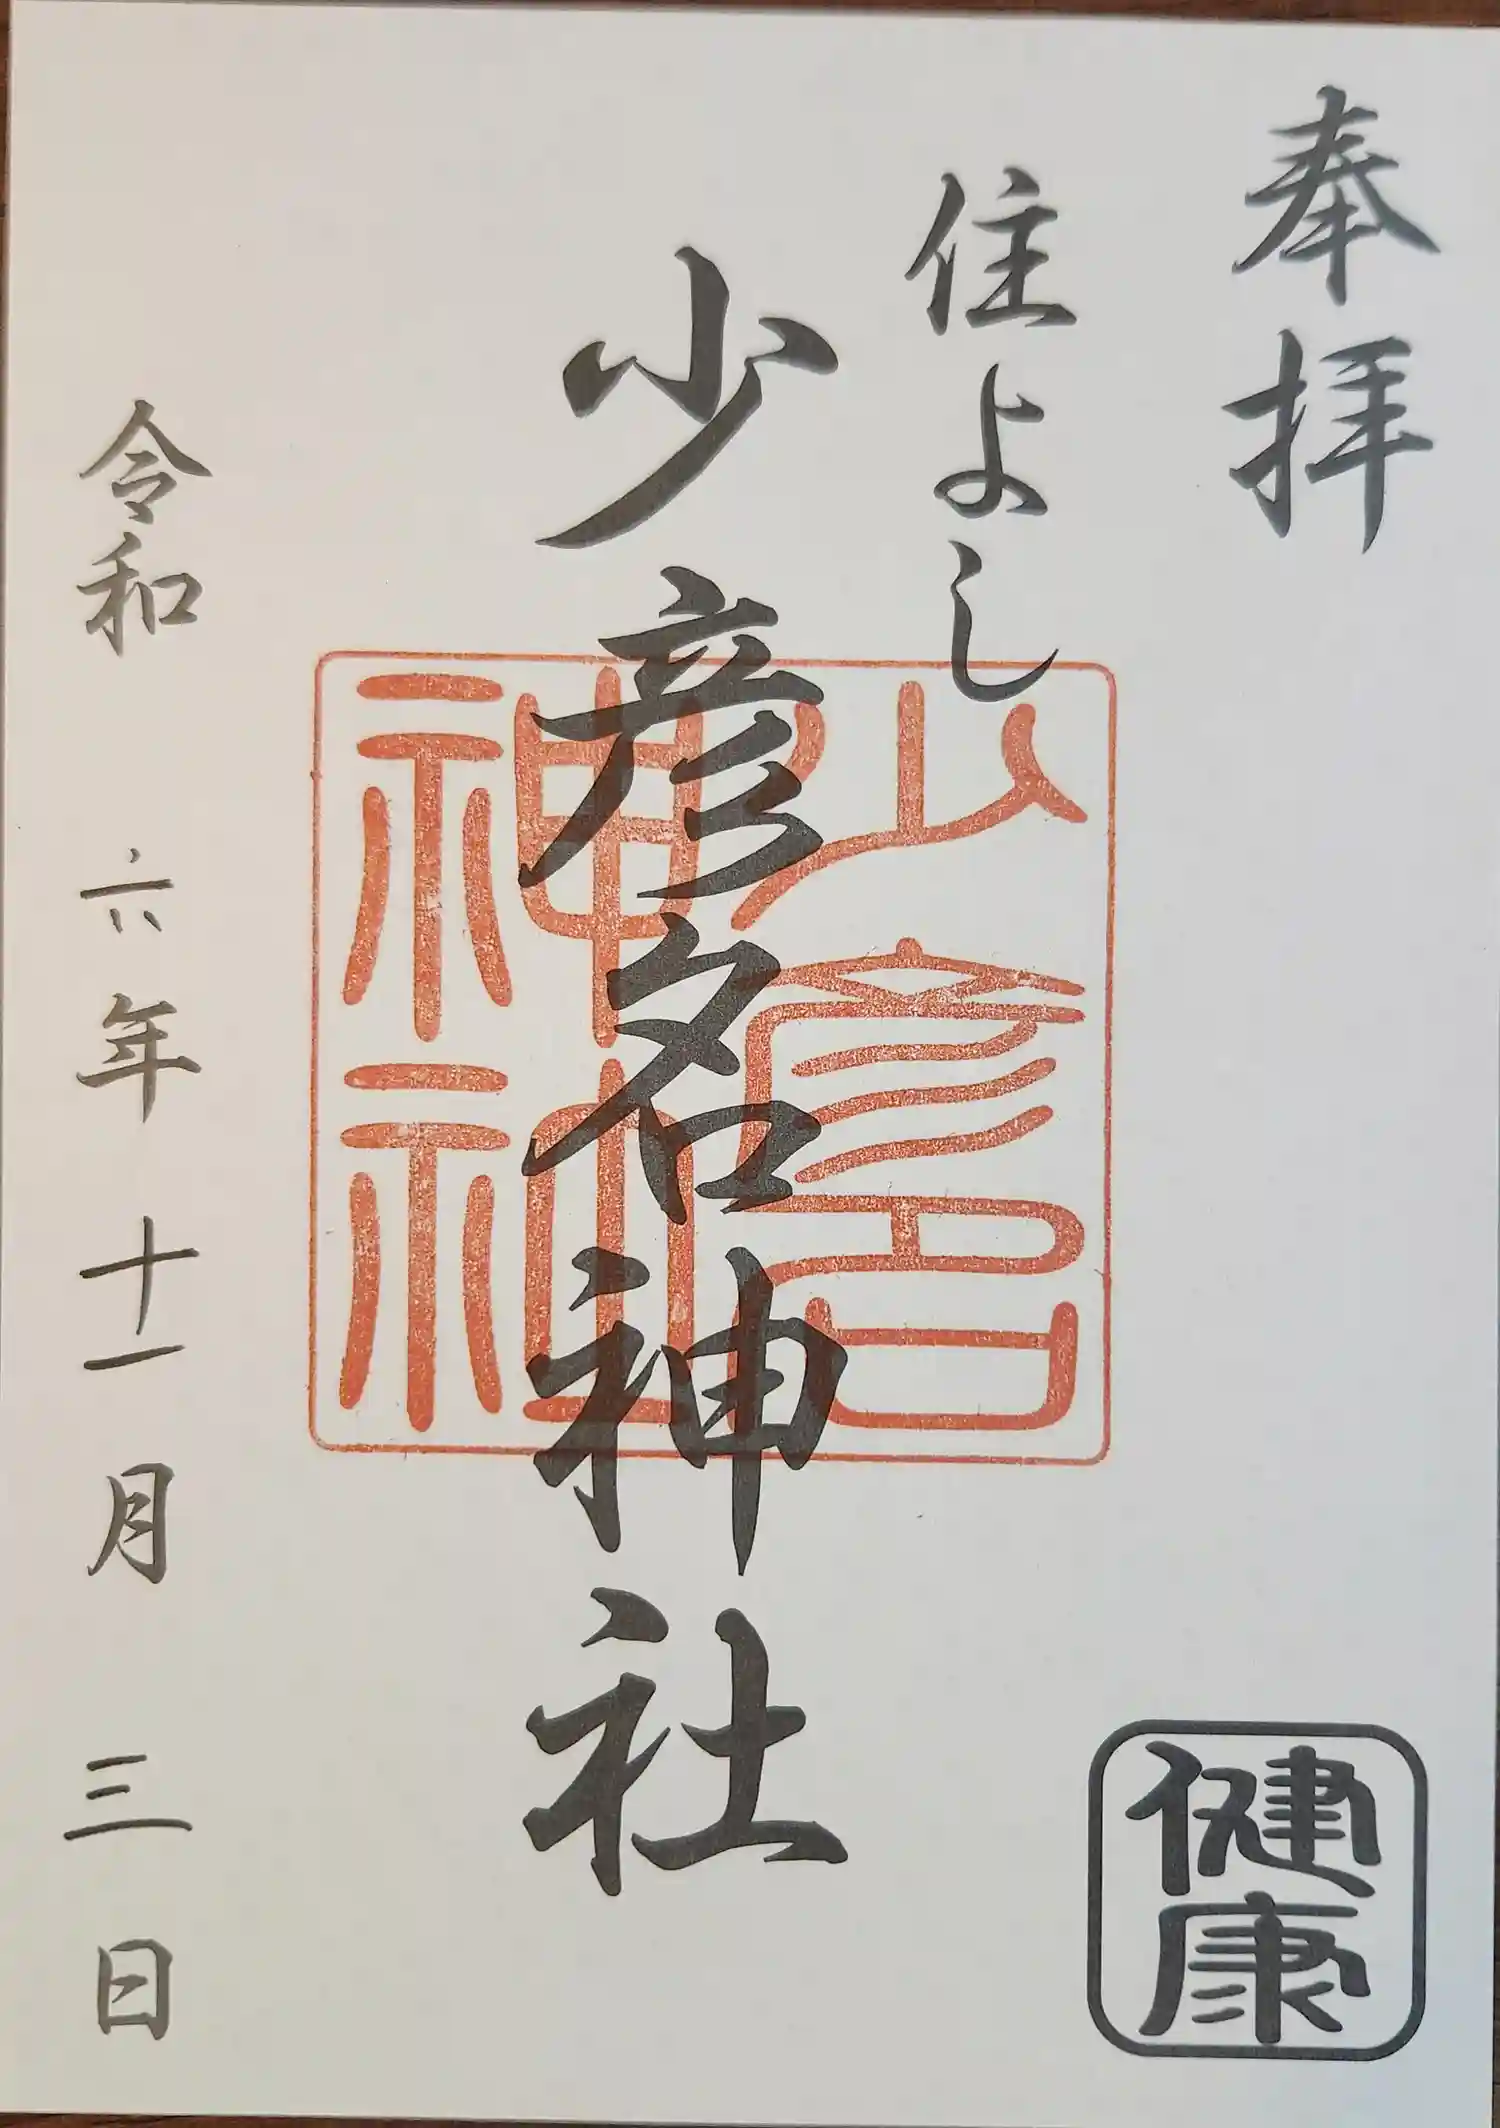 奉拝
住よし
少彦名神社
少彦名
神社
令和 六年十一月 三日
健康